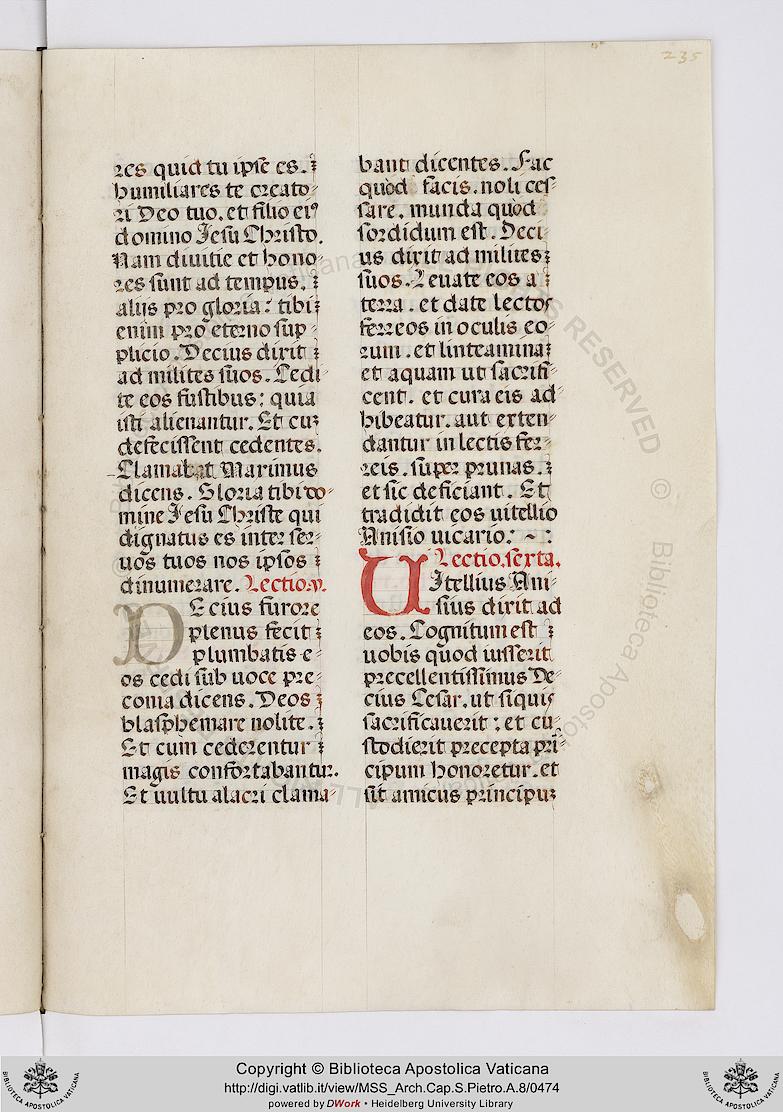 235
res quid tu ipse es. ⁊
humiliares te creato-
ri Deo tuo. et filio eiꝰ
domino Jesu Christo.
Nam diuitie et hono-
res sunt ad tempus. ⁊
aliis pro gloria: tibi
enim pro eterno sup-
plicio. Decius dixit ⁊
ad milites suos. Cedi-
te eos fustibus: quia
isti alienantur. Et cuꝫ
defecissent cedentes.
Clamabat Marinus
dicens. Gloria tibi do-
mine Jesu Christe qui
dignatus es inter ser-
uos tuos nos ipsos ⁊
dinumerare. Lectio.v.
Decius furore
plenus fecit ⁊
plumbatis e-
os cedi sub uoce pre-
conia dicens. Deos ⁊
blasphemare nolite. ⁊
Et cum cederentur ⁊
magis confortabantur.
Et uultu alacri clama-
bant dicentes. Fac
quod facis. noli ces-
sare. munda quod
sordidum est. Deci-
us dixit ad milites ⁊
suos. Leuate eos a ⁊
terra. et date lectos
ferreos in oculis eo-
rum. et linteamina ⁊
et aquam ut sacrifi-
cent. et cura eis ad-
hibeatur. aut exten-
dantur in lectis fer-
reis. super prunas. ⁊
et sic deficiant. Et
tradidit eos uitellio
Anisio uicario: ~ :
Lectio.sexta.
Uitellius Ani-
sius dixit ad
eos. Cognitum est ⁊
uobis quod iusserit
precellentissimus De-
cius Cesar. ut siquis
sacrificauerit: et cu-
stodierit precepta prī-
cipum honoretur. et
sit amicus principuꝫ
Copyright © Biblioteca Apostolica Vaticana
http://digi.vatlib.it/view/MSS_Arch.Cap.S.Pietro.A.8/0474
powered by DWork • Heidelberg University Library
BIBLIOTECA APOSTOLICA VATICANA
BIBLIOTECA APOSTOLICA VATICANA